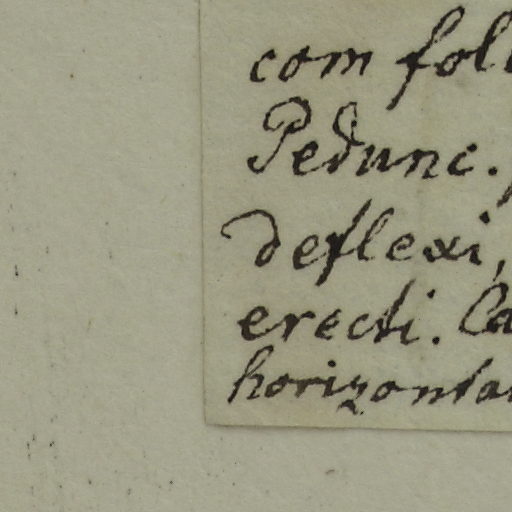 com fol
Pedunc.
deflexi,
erecti. Ca
horizonta